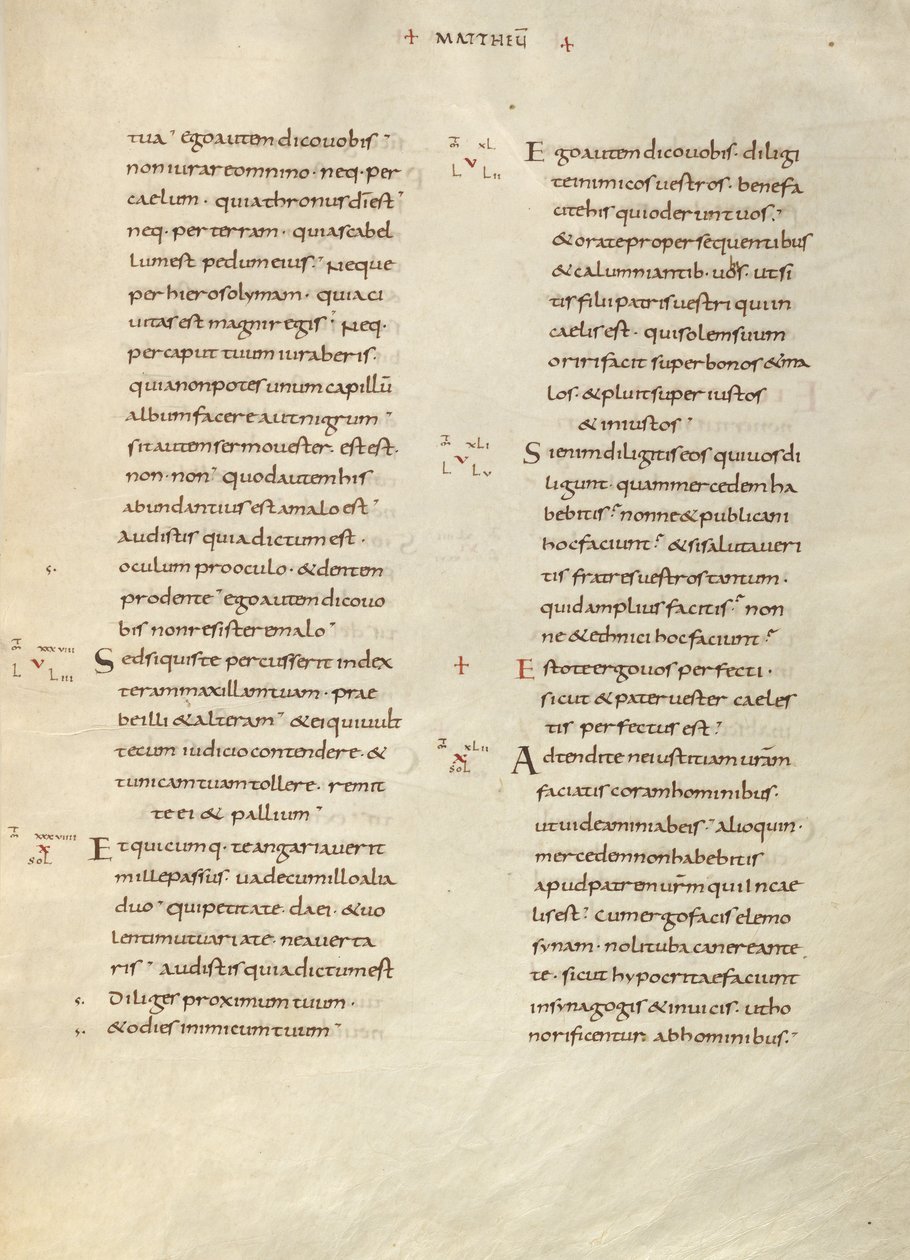 + MATTHEŪ +
tua; ego autem dico uobis;
non iurare omnino· neq· per
caelum· quia thronus dī est;
neq· per terram· quia scabel
lum est pedum eius; Neque
per hierosolymam· quia ci
uitas est magni regis; Neq·
per caput tuum iuraberis·
quia non potes unum capillū
album facere aut nigrum;
sit autem sermo uester· est est·
non· non; quod autem his
abundantius est a malo est;
Audistis quia dictum est·
oculum pro oculo· & dentem
pro dente; ego autem dico uo
bis non resistere malo;
xxxviii
L V Liii
Sed si quis te percusserit in dex
teram maxillam tuam· prae
be illi & alteram; & ei qui uult
tecum iudicio contendere· &
tunicam tuam tollere· remit
te ei & pallium;
xxxviiii
X
sol
Et quicumq· te angariauerit
mille passus· uade cum illo alia
duo; Qui petit a te· da ei· & uo
lenti mutuari a te· ne auerta
ris; Audistis quia dictum est
Diliges proximum tuum·
& odies inimicum tuum;
xL
L V Lii
Ego autem dico uobis· diligi
te inimicos uestros· benefa
cite his qui oderunt uos;
& orate pro persequentibus
& calumniantib· uos· ut si
tis filii patris uestri qui in
caelis est· qui solem suum
oriri facit super bonos & ma
los· & pluit super iustos
& iniustos;
xLi
L V Lv
Si enim diligitis eos qui uos di
ligunt· quam mercedem ha
bebitis? nonne & publicani
hoc faciunt? & si salutaueri
tis fratres uestros tantum·
quid amplius facitis? non
ne & ethnici hoc faciunt?
+ Estote ergo uos perfecti·
sicut & pater uester caeles
tis perfectus est;
xLii
X
sol
Adtendite ne iustitiam urām
faciatis coram hominibus·
ut uideamini ab eis; alioquin·
mercedem non habebitis
apud patrem urm̄ qui in cae
lis est; Cum ergo facis elemo
synam· noli tuba canere ante
te· sicut hypocritae faciunt
in synagogis & in uicis· ut ho
norificentur ab hominibus;